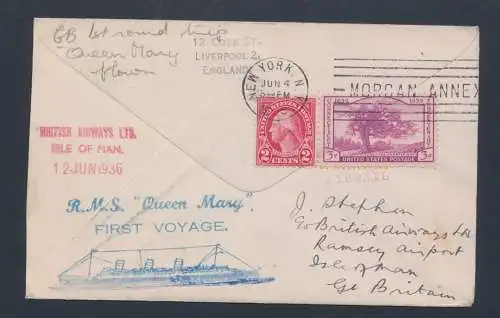 GB 1st round trip
"Queen Mary"
flown
12 CORK ST.
LIVERPOOL 2,
ENGLAND
NEW YORK, N.Y.
JUN 4
PM
MORGAN ANNEX
UNITED STATES POSTAGE
2 CENTS 2
1635 1935
UNITED STATES POSTAGE
3¢ 3¢
BRITISH AIRWAYS LTD.
ISLE OF MAN.
12 JUN 1936
R.M.S. "Queen Mary".
FIRST VOYAGE.
J. Stephen
c/o British Airways Ltd
Ramsey Airport
Isle of Man
Gt Britain